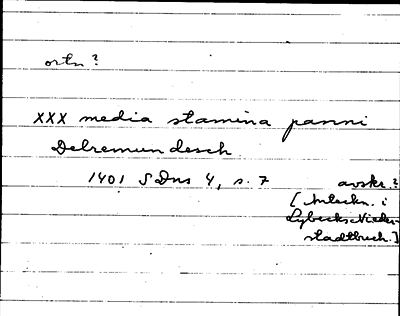 ortn?
XXX media stamina panni
Delremundesch
1401 SDns 4, s. 7 avskr.?
[Anteckn. i
Lybecks Nieder-
stadtbuch.]